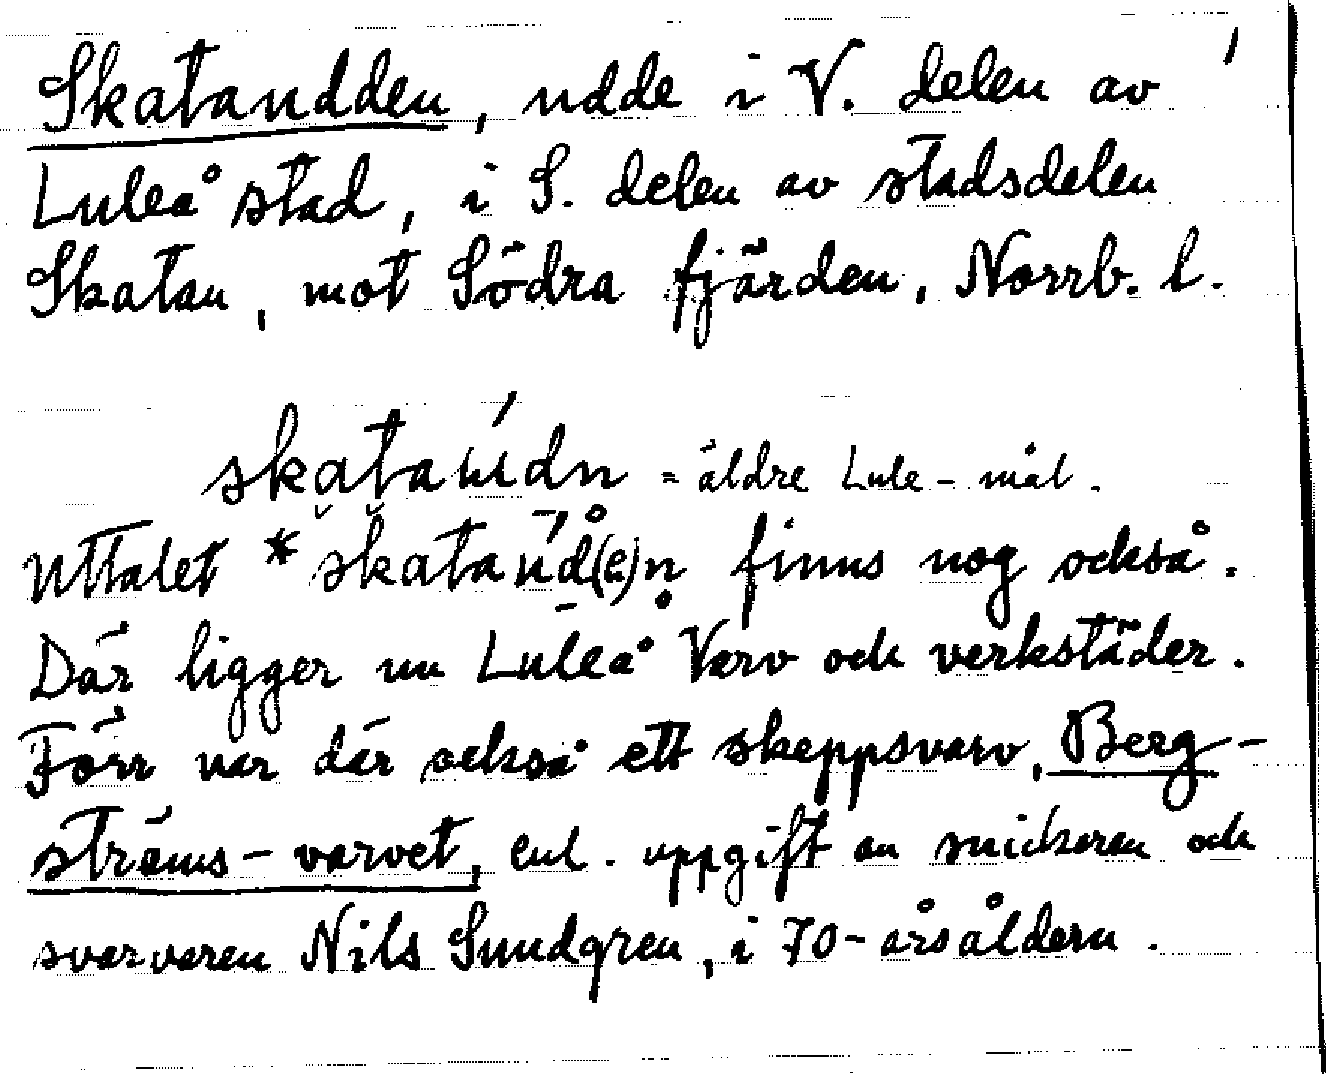 Skatandden, udde i V. delen av
Luleå stad, i S. delen av stadsdelen
Skatan, mot Södra fjärden, Norrb. l.
skataúdn = äldre Lule-mål.
Uttalet * skataúd(e)n finns nog också.
Där ligger nu Luleå Varv och verkstäder.
Förr var där också ett skeppsvarv, Berg-
ströms-varvet, enl. uppgift av snickaren och
svarvaren Nils Sundgren, i 70-årsåldern.